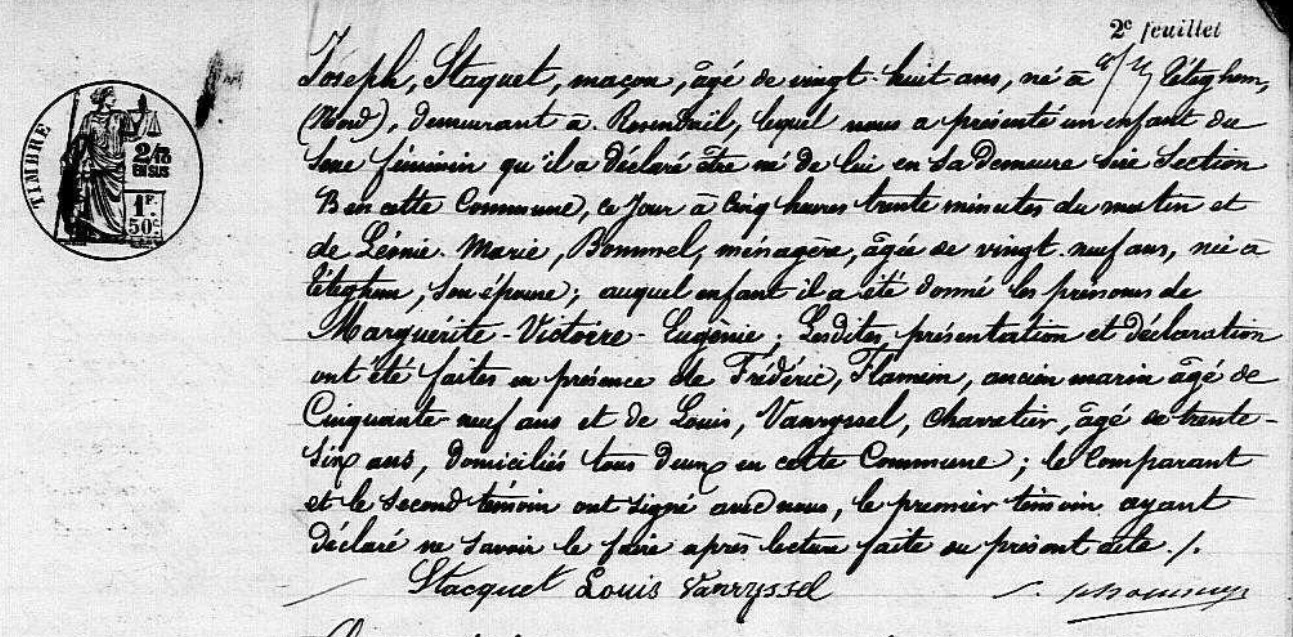 2e feuillet
TIMBRE
2/10
EN SUS
1F.
50c.
Joseph, Staquet, maçon, âgé de vingt-huit ans, né à Téteghem,
(Nord), demeurant à Rosendaël, lequel nous a présenté un enfant du
sexe féminin qu'il a déclaré être né de lui en sa demeure sise Section
B en cette Commune, ce jour à cinq heures trente minutes du matin et
de Léonie-Marie, Bommel, ménagère, âgée de vingt-neuf ans, née à
Téteghem, son épouse; auquel enfant il a été donné les prénoms de
Marguérite-Victoire-Eugènie; Lesdites présentation et déclaration
ont été faites en présence de Frédéric, Flamein, ancien marin âgé de
Cinquante-neuf ans et de Louis, Vanryssel, charretier, âgé de trente-
six ans, domiciliés tous deux en cette Commune; le Comparant
et le second témoin ont signé avec nous, le premier témoin ayant
déclaré ne savoir le faire après lecture faite du présent acte./.
Stacquet Louis Vanryssel